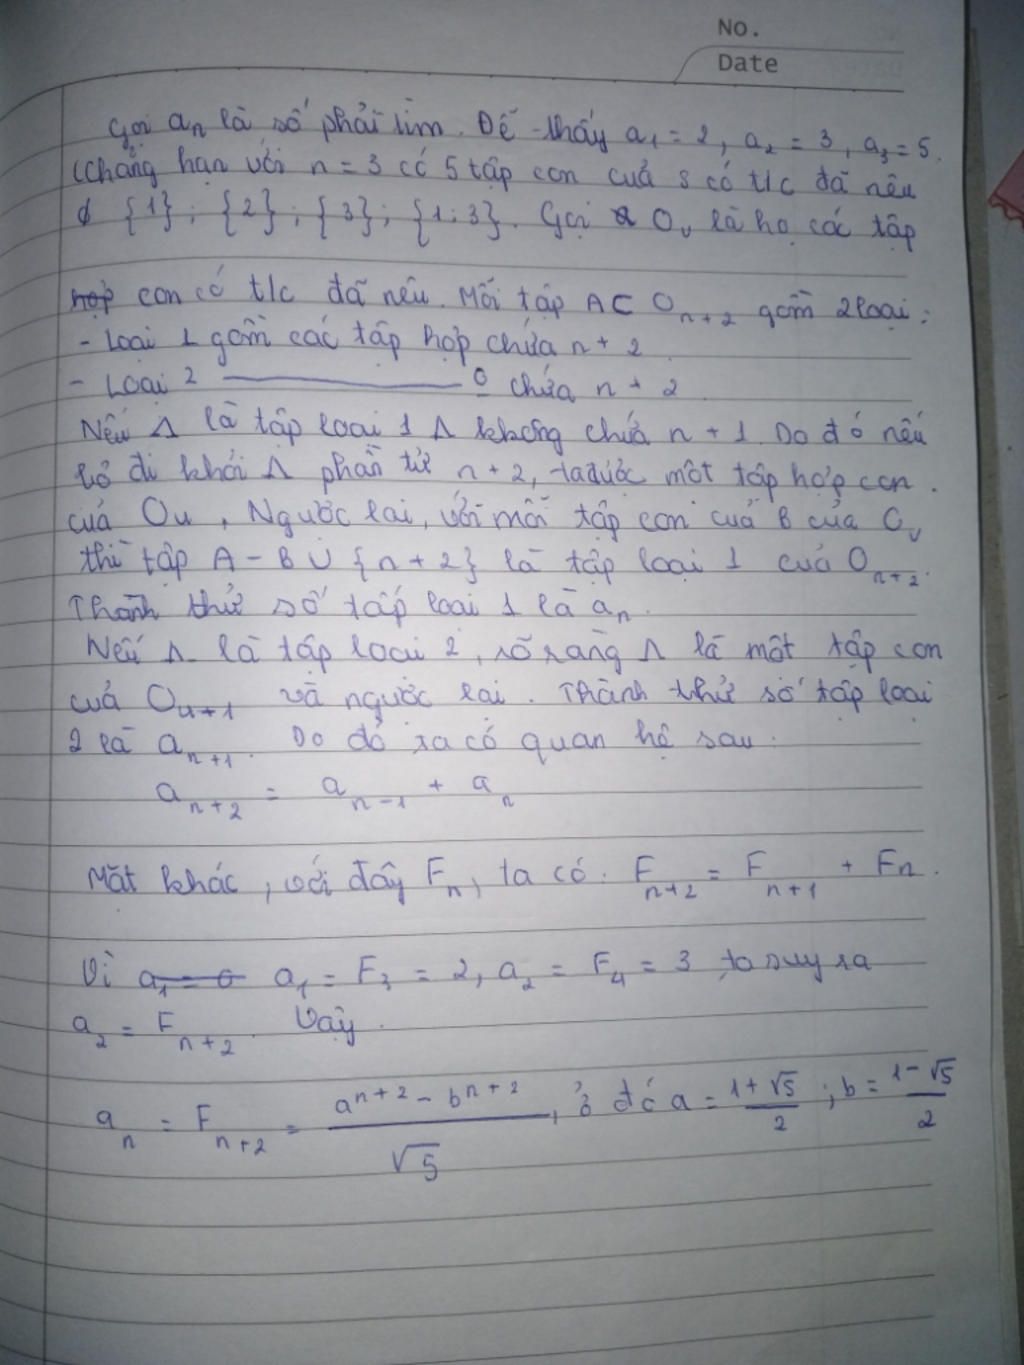 No.
Date
Gọi aₙ là số phải tìm. Dễ thấy a₁ = 2, a₂ = 3, a₃ = 5.
(Chẳng hạn với n = 3 có 5 tập con của S có t/c đã nêu
∅ {1}; {2}; {3}; {1;3}. Gọi Oᵤ là họ các tập
hợp con có t/c đã nêu. Mỗi tập A ⊂ Oₙ₊₂ gồm 2 loại:
- Loại 1 gồm các tập hợp chứa n + 2.
- Loại 2 ——— 0 chứa n + 2
Nếu A là tập loại 1 A không chứa n + 1. Do đó nếu
bỏ đi khỏi A phần tử n + 2, ta được một tập hợp con.
của Oᵤ, Ngược lại, với mỗi tập con của B của Oᵤ
thì tập A - B ∪ {n + 2} là tập loại 1 của Oₙ₊₂.
Thành thử số tập loại 1 là aₙ.
Nếu A là tập loại 2, rõ ràng A là một tập con
của Oᵤ₊₁ và ngược lại. Thành thử số tập loại
2 là aₙ₊₁. Do đó ra có quan hệ sau:
aₙ₊₂ = aₙ₋₁ + aₙ
Mặt khác, với đây Fₙ, ta có: Fₙ₊₂ = Fₙ₊₁ + Fn.
Vì a₁ = 0 a₁ = F₃ = 2, a₂ = F₄ = 3 ta suy ra
a₂ = Fₙ₊₂. Vậy.
aₙ = Fₙ₊₂ = (aⁿ⁺² - bⁿ⁺²)/√5, ở đó a = (1 + √5)/2; b = (1 - √5)/2